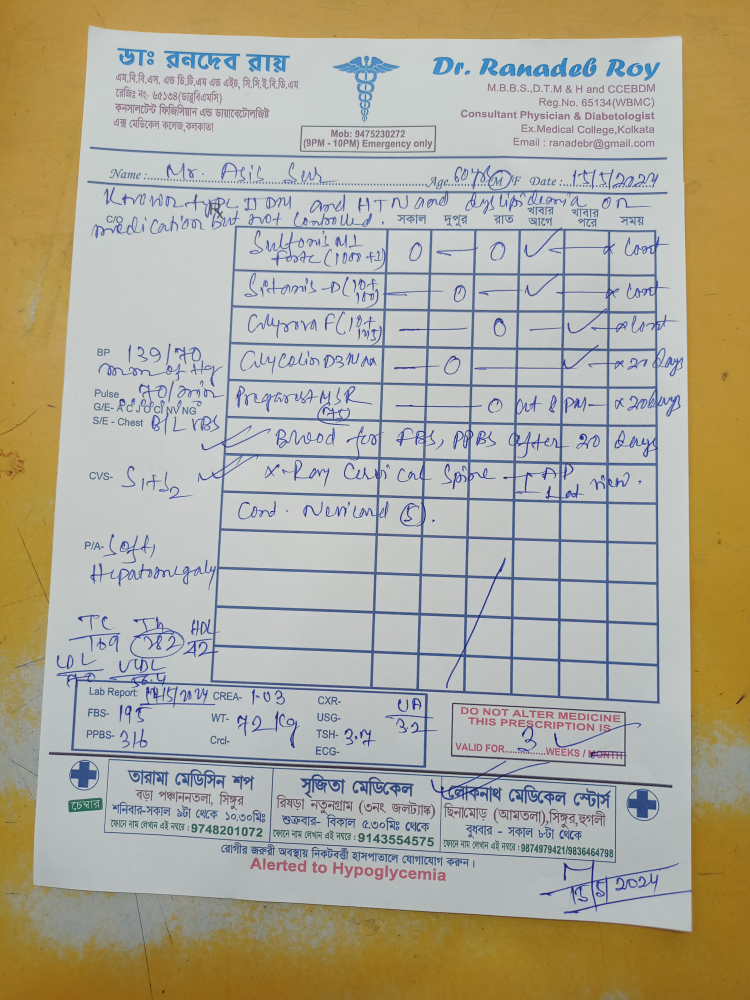 ডাঃ রনদেব রায়
এম.বি.বি.এস, এন্ড ডি.টি.এম এন্ড এইচ, সি.সি.ই.বি.ডি.এম
রেজিঃ নং- ৬৫১৩৪(ডাব্লুবিএমসি)
কনসালটেন্ট ফিজিসিয়ান এন্ড ডায়াবেটোলজিষ্ট
এক্স মেডিকেল কলেজ,কলকাতা
Dr. Ranadeb Roy
M.B.B.S.,D.T.M & H and CCEBDM
Reg.No. 65134(WBMC)
Consultant Physician & Diabetologist
Ex.Medical College,Kolkata
Email : ranadebr@gmail.com
Mob: 9475230272
(9PM - 10PM) Emergency only
Name :.... Mr. Asis Sur Age. 60yrs M/F Date : 15/5/2024
Known type II DM and HTN and dyslipidemia on
C/O medication but not controlled.
সকাল দুপুর রাত খাবার আগে খাবার পরে সময়
Sultonis M1 forte (1000+1) O — O ✓ — x Cont
Sitanis-D (10+100) — O — ✓ — x Cont
(10+ — O — ✓ x Cont
D3 — O — ✓ x 20 days
SR (75) — O at 8 PM - x 20 days
BP 139/70
mm of Hg
Pulse 70/min
G/E- A C J O Cl NV NG
S/E - Chest B/L VBS
Blood for FBS, PPBS after 20 days
X-Ray Cervical Spine - AP Lat view.
CVS- S1+S2
Cont. (5).
P/A- Soft,
Hepatomegaly
TC 169 TG 282 HDL 42
LDL VLDL 56.4
Lab Report: 14/5/2024 CREA- 1.03 CXR- UA
FBS- 195 WT- 72 Kg USG- 3.2
PPBS- 316 Crcl- TSH- 3.7
ECG-
DO NOT ALTER MEDICINE
THIS PRESCRIPTION IS
VALID FOR 3 WEEKS / MONTH
চেম্বার
তারামা মেডিসিন শপ
বড়া পঞ্চাননতলা, সিঙ্গুর
শনিবার-সকাল ৯টা থেকে ১০.৩০মিঃ
ফোনে নাম লেখান এই নম্বরে : 9748201072
সৃজিতা মেডিকেল
রিষড়া নতুনগ্রাম (৩নং জলট্যাঙ্ক)
শুক্রবার- বিকাল ৫.৩০মিঃ থেকে
ফোনে নাম লেখান এই নম্বরে : 9143554575
লোকনাথ মেডিকেল স্টোর্স
ছিনামোড় (আমতলা),সিঙ্গুর,হুগলী
বুধবার - সকাল ৮টা থেকে
ফোনে নাম লেখান এই নম্বরে :9874979421/9836464798
রোগীর জরুরী অবস্থায় নিকটবর্ত্তী হাসপাতালে যোগাযোগ করুন।
Alerted to Hypoglycemia
15/5/2024